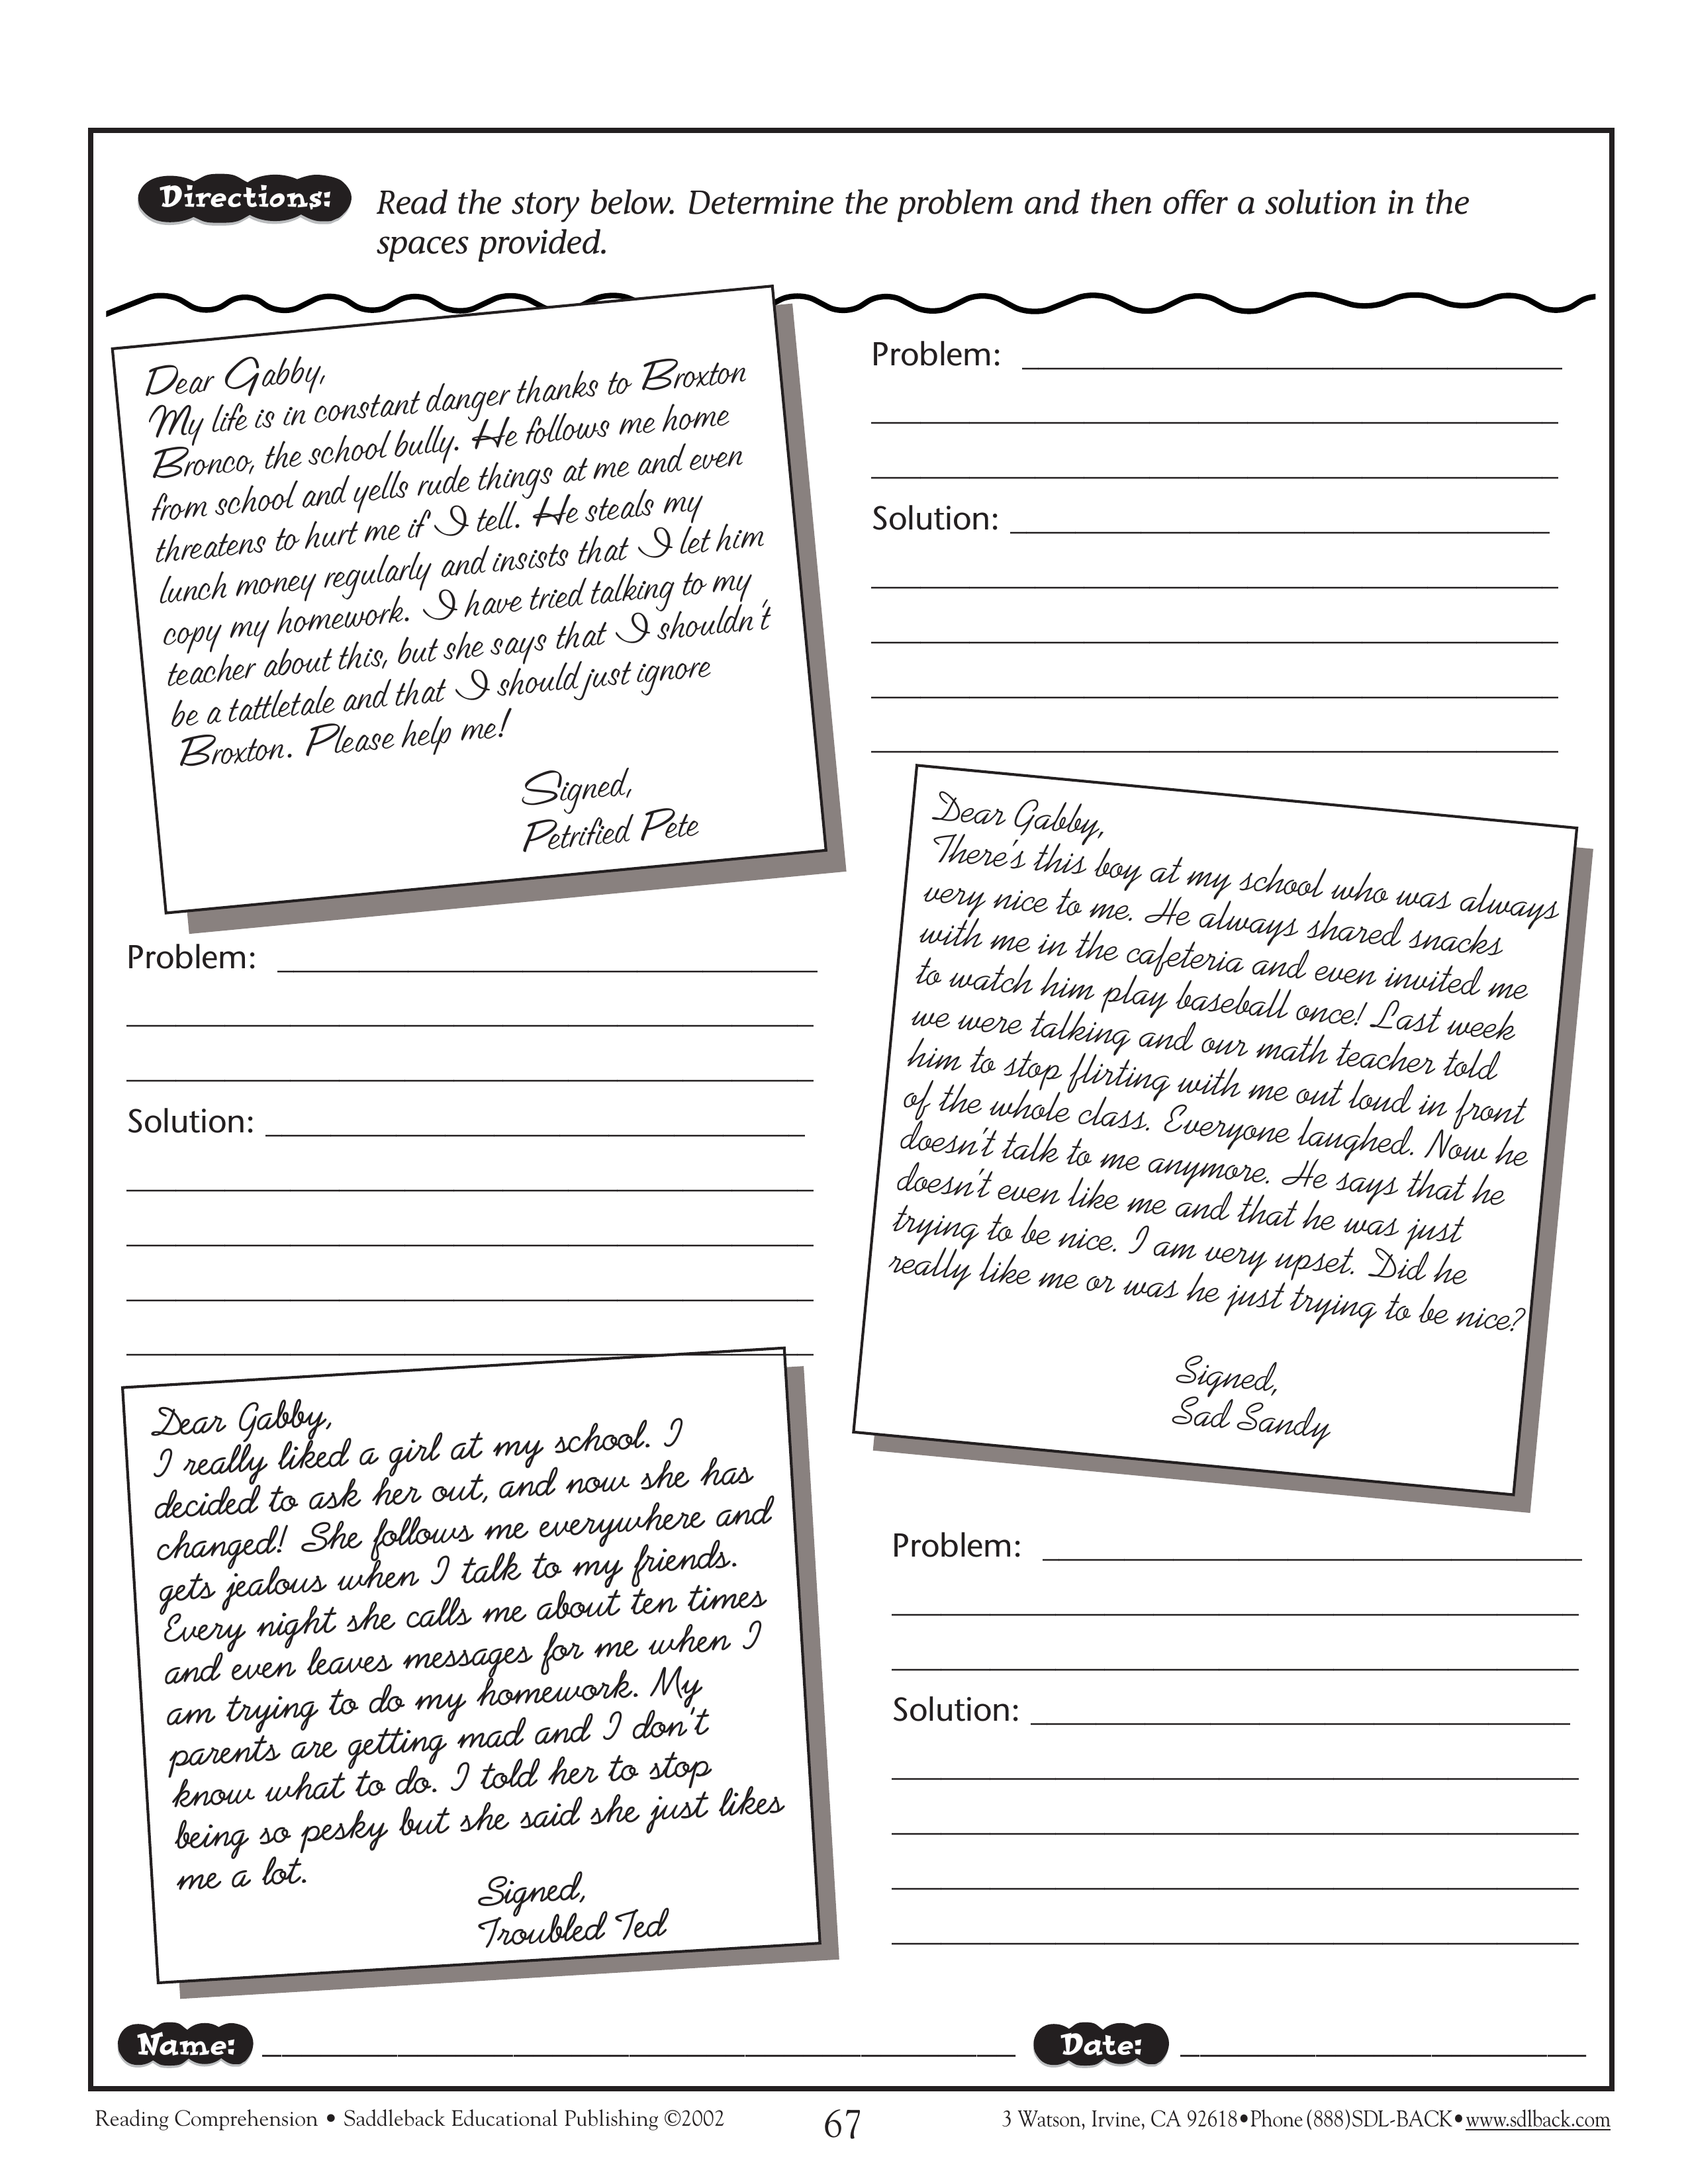 Directions:
Read the story below. Determine the problem and then offer a solution in the
spaces provided.
Dear Gabby,
My life is in constant danger thanks to Broxton
Bronco, the school bully. He follows me home
from school and yells rude things at me and even
threatens to hurt me if I tell. He steals my
lunch money regularly and insists that I let him
copy my homework. I have tried talking to my
teacher about this, but she says that I shouldn't
be a tattletale and that I should just ignore
Broxton. Please help me!
Signed,
Petrified Pete
Problem:
Solution:
Dear Gabby,
There's this boy at my school who was always
very nice to me. He always shared snacks
with me in the cafeteria and even invited me
to watch him play baseball once! Last week
we were talking and our math teacher told
him to stop flirting with me out loud in front
of the whole class. Everyone laughed. Now he
doesn't talk to me anymore. He says that he
doesn't even like me and that he was just
trying to be nice. I am very upset. Did he
really like me or was he just trying to be nice?
Signed,
Sad Sandy
Problem:
Solution:
Dear Gabby,
I really liked a girl at my school. I
decided to ask her out, and now she has
changed! She follows me everywhere and
gets jealous when I talk to my friends.
Every night she calls me about ten times
and even leaves messages for me when I
am trying to do my homework. My
parents are getting mad and I don't
know what to do. I told her to stop
being so pesky but she said she just likes
me a lot.
Signed,
Troubled Ted
Problem:
Solution:
Name:
Date:
Reading Comprehension • Saddleback Educational Publishing ©2002
67
3 Watson, Irvine, CA 92618•Phone (888)SDL-BACK•www.sdlback.com